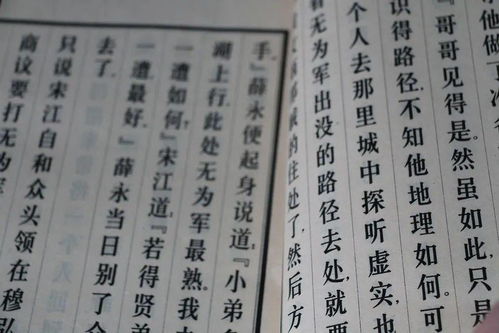 他做
『哥哥见得是。然虽如此，只是
识得路径，不知他地理如何。可
个人去那里城中探听虚实，也
看无为军出没的路径去处，就要
的住处了，然后方
手。』薛永便起身说道：『小弟多
湖上行，此处无为军最熟。我
一遭如何？』宋江道：『若得贤弟
一遭最好。』薛永当日别了
去了。
只说宋江自和众头领在穆弘
商议要打无为军